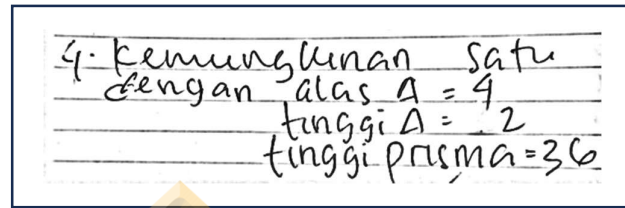 4. Kemungkinan satu
dengan alas Δ = 4
tinggi Δ = 2
tinggi prisma = 36